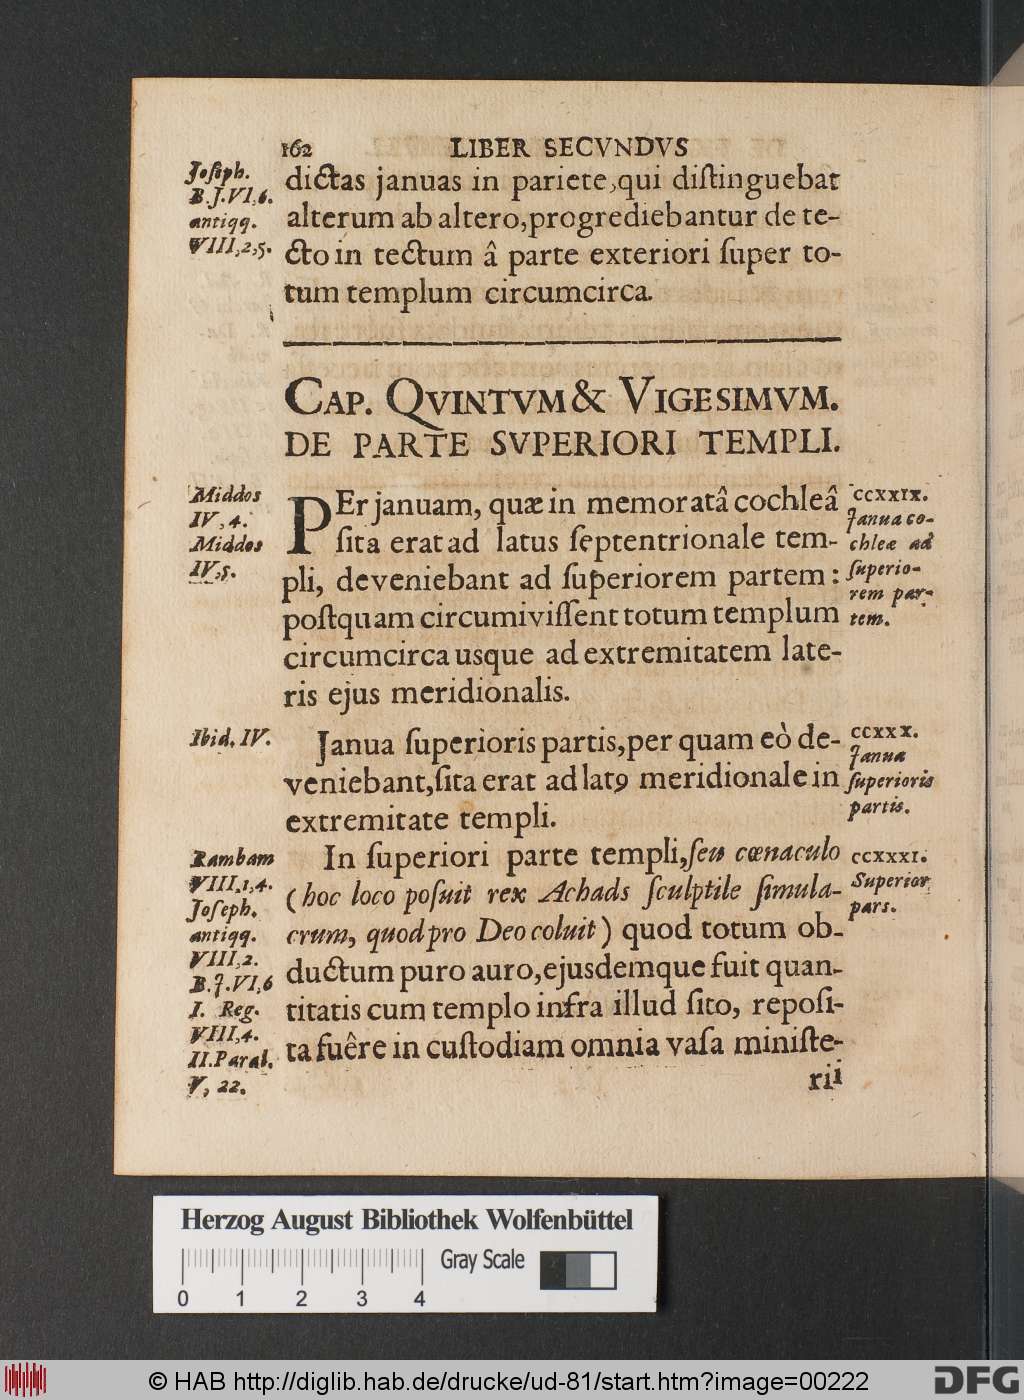 162 LIBER SECVNDVS
Joſeph.
B.J.VI,6.
antiqq.
VIII,2,5.
dictas januas in pariete,qui diſtinguebat
alterum ab altero,progrediebantur de te-
cto in tectum â parte exteriori ſuper to-
tum templum circumcirca.
CAP. QVINTVM & VIGESIMVM.
DE PARTE SVPERIORI TEMPLI.
Middos
IV,4.
Middos
IV,5.
PEr januam, quæ in memoratâ cochleâ
ſita erat ad latus ſeptentrionale tem-
pli, deveniebant ad ſuperiorem partem:
poſtquam circumiviſſent totum templum
circumcirca usque ad extremitatem late-
ris ejus meridionalis.
CCXXIX.
Janua co-
chleæ ad
ſuperio-
rem par-
tem.
Ibid. IV.
Janua ſuperioris partis,per quam eò de-
veniebant,ſita erat ad latꝰ meridionale in
extremitate templi.
CCXXX.
Janua
ſuperioris
partis.
Rambam
VIII,1,4.
Joſeph.
antiqq.
VIII,2.
B.J.VI,6
I. Reg.
VIII,4.
II.Paral.
V, 22.
In ſuperiori parte templi,ſeu cœnaculo
(hoc loco poſuit rex Achads ſculptile ſimula-
crum, quod pro Deo coluit) quod totum ob-
ductum puro auro,ejusdemque fuit quan-
titatis cum templo infra illud ſito, repoſi-
ta fuêre in cuſtodiam omnia vaſa miniſte-
rii
CCXXXI.
Superior
pars.
Herzog August Bibliothek Wolfenbüttel
Gray Scale
0 1 2 3 4
© HAB http://diglib.hab.de/drucke/ud-81/start.htm?image=00222
DFG